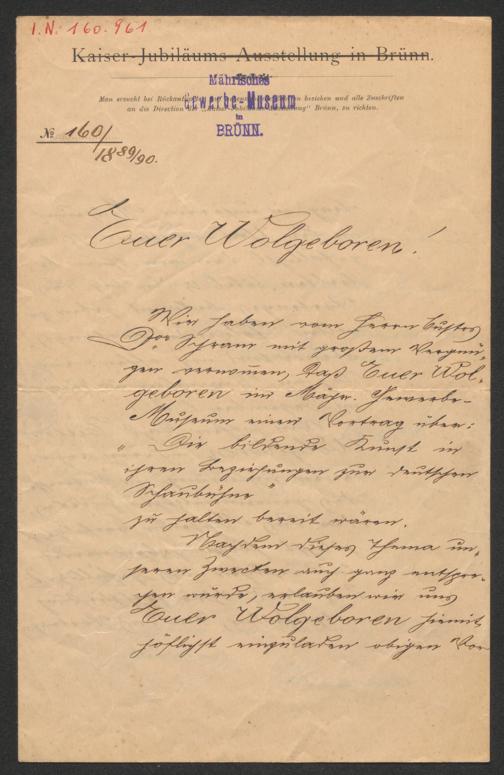 I.N. 160.961
Kaiser-Jubiläums-Ausstellung in Brünn.
Mährisches
Gewerbe-Museum
in
BRÜNN.
Man ersucht bei Rückantwort beziehen und alle Zuschriften
an die Direction der Ausstellung" Brünn, zu richten.
№ 160/
1889/90.
Euer Wolgeboren!
Wir haben vom Herrn Custos
Dor Schram mit großem Vergnü-
gen vernomen, daß Euer Wol-
geboren im Mähr. Gewerbe-
Museum einen Vortrag über:
„Die bildende Kunst in
ihren Beziehungen zur deutschen
Schaubühne"
zu halten bereit wären.
Nachdem dieses Thema un-
seren Zwecken auch ganz entspre-
chen würde, erlauben wir uns
Euer Wolgeboren hiemit
höflichst einzuladen obigen Vor-